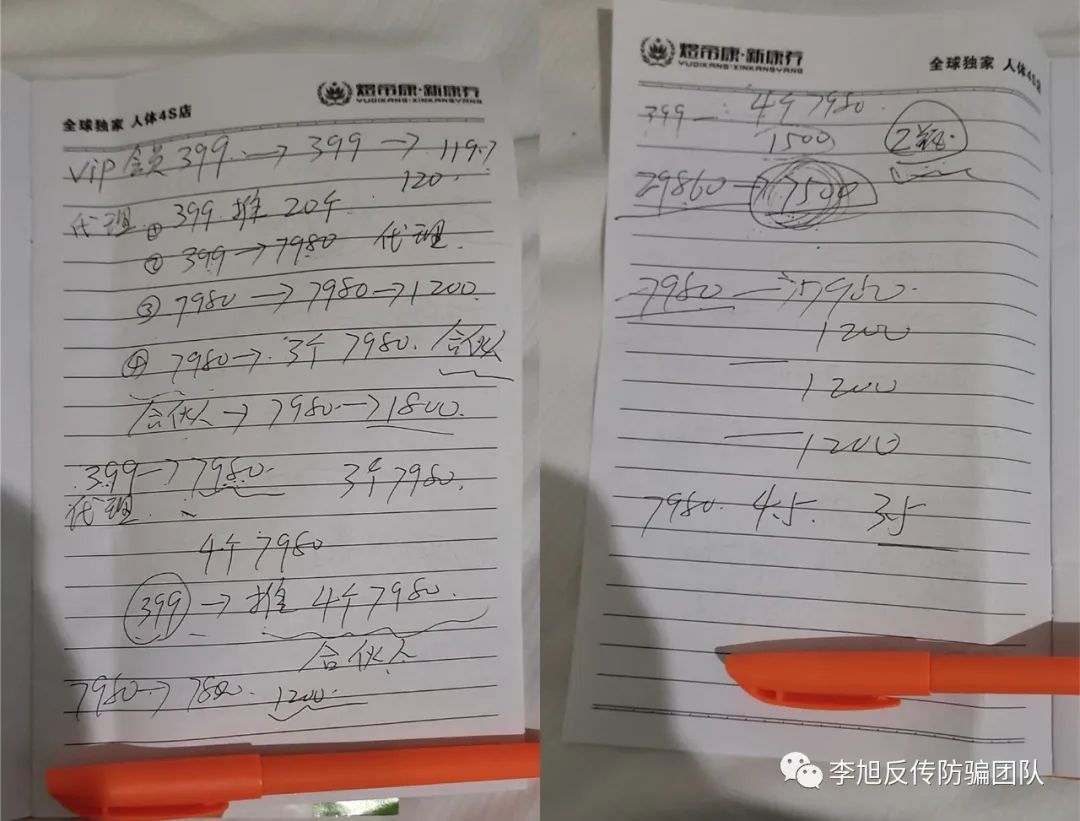 煜帝康·新康养
YUDIKANG·XINKANGYANG
全球独家 人体4S店
Vip会员399 → 399 → 119.7
120.
代理 ① 399 推 20个
② 399 → 7980 代理.
③ 7980 → 7980 → 1200.
④ 7980 → 3个 7980. 合伙人
合伙人 → 7980 → 1800.
399 → 7980. 3个7980.
代理.
4个7980
399 → 推 4个7980.
合伙人
7980 → 1200.
煜帝康·新康养
YUDIKANG·XINKANGYANG
全球独家 人体4S店
399 — 4个7980
1500
29860 → 7500
7980 →
1200
— 1200
— 1200
7980. 4.5. 3.5
李旭反传防骗团队